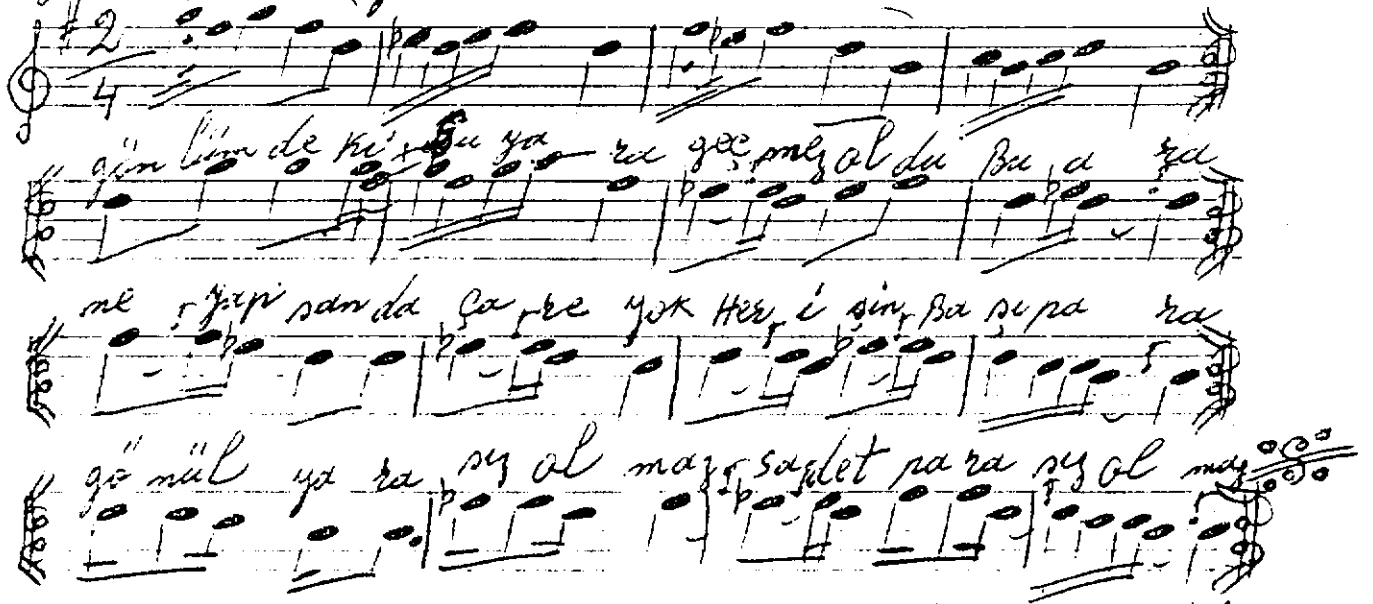 2
4
gön lüm de ki su ya ra geç mez ol du Bu a ra
ne yap san da ça re yok Her i şin Ba şı pa ra
gö nül ya ra sız ol maz saadet pa ra sız ol maz